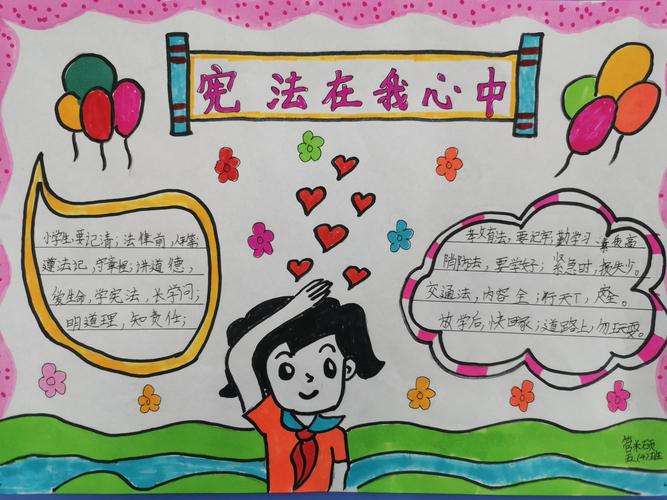 宪法在我心中
小学生,要记清;法律前,人平等
遵法记,守章程;讲道德,
爱生命,学宪法,长学问;
明道理,知责任;
教育法,要记牢,勤学习,素质高
消防法,要学好;紧急时,损失少。
交通法,内容全;行天下,安全。
放学后,快回家;道路上,勿玩耍。
管米硕
五(4)班